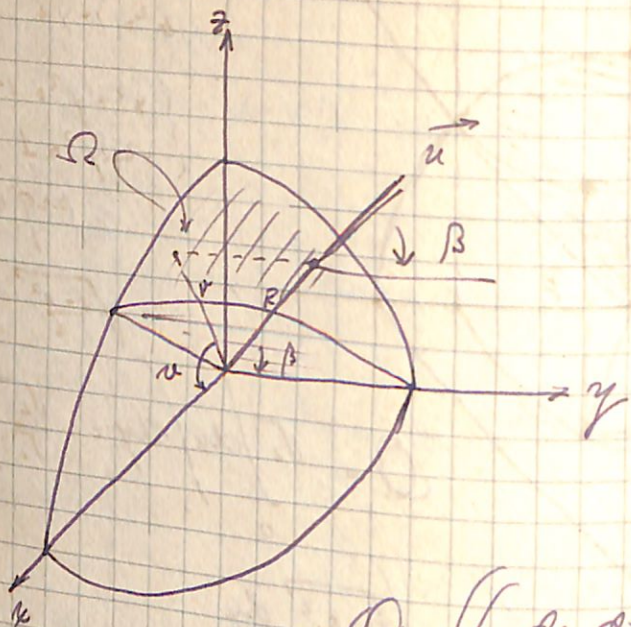 z
Ω
u
β
r
R
β
y
x